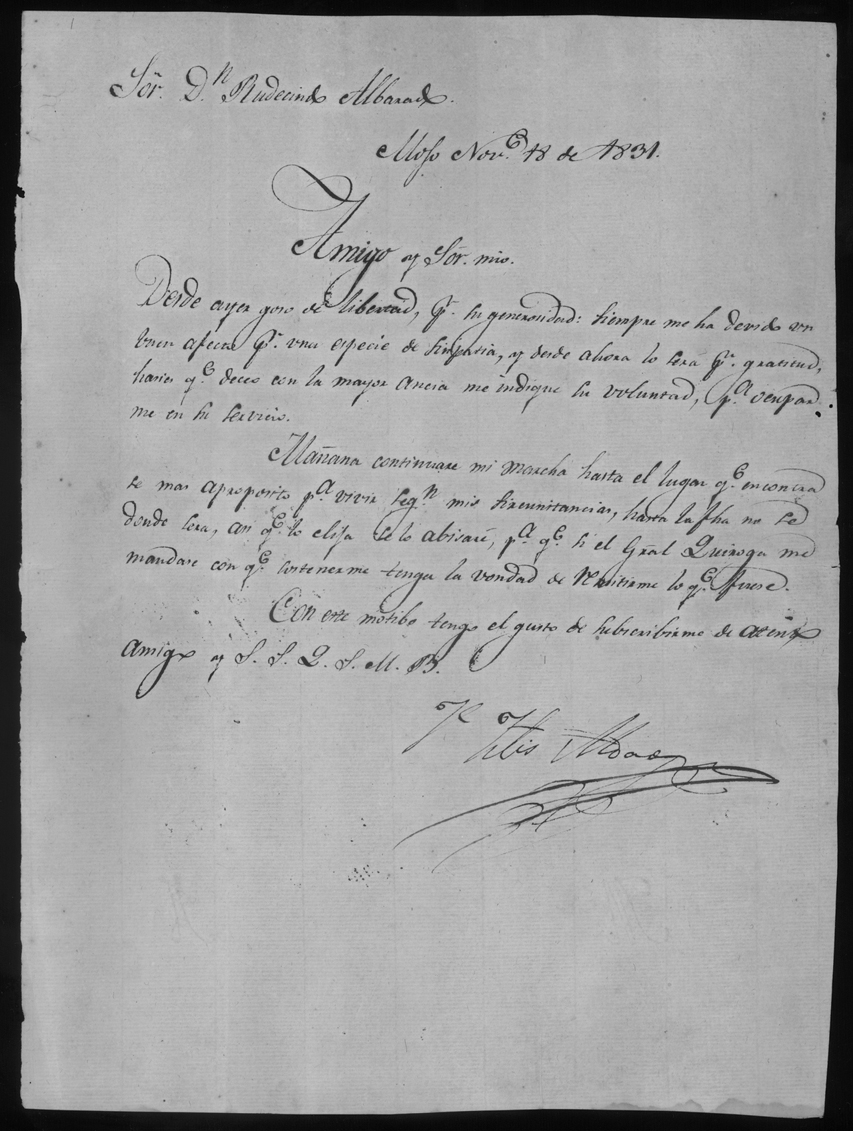 Sōr. D.n Rudecindo Albarado.
Mojo Nov.e 18 de 1831.
Amigo y Sōr. mio.
Desde ayer goso de libertad, pr. su generosidad: siempre me ha devido un
buen afecto pr. una especie de simpatia, y desde ahora lo sera pr. gratitud,
haria qe. deceo con la mayor ancia me indique su voluntad, pa. ocupar
me en su servicio.
Mañana continuare mi marcha hasta el lugar qe. encontra
se mas aproposito pa. vivir segn. mis sircunstancias, hasta la fha no se
donde sera, asi qe. lo elija se lo abisaré, pa. qe. si el Gral Quiroga me
mandase con qe. sostenerme tenga la vondad de remitirme lo qe. fuese.
Con este motibo tengo el gusto de subscribirme de
amigo y S. S. Q. S. M. B.
Je Felis Aldao